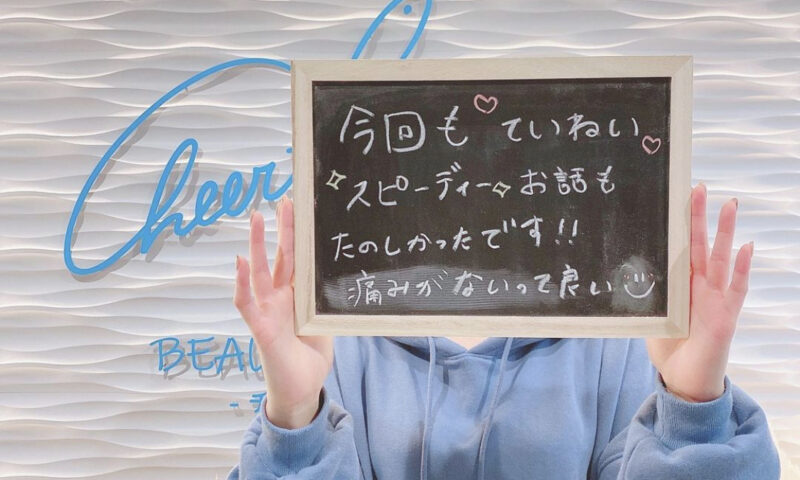 Cheer
BEAU
今回も♡ていねい♡
✧スピーディー✧お話も
たのしかったです!!
痛みがないって良い☺